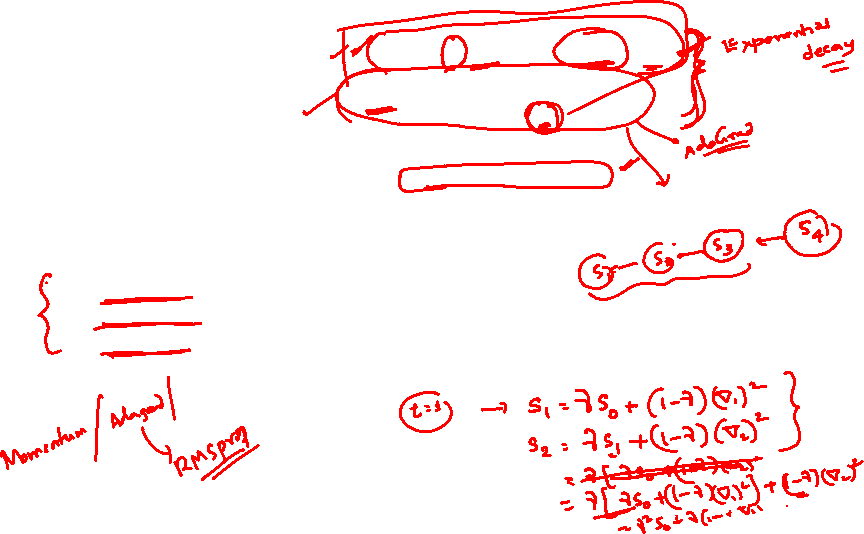 Exponential
decay
AdaGrad
S1 S2 S3 S4
Momentum / Adagrad |
RMSprop
t=1 → S₁ = γS₀ + (1-γ)(∇₁)²
S₂ = γS₁ + (1-γ)(∇₂)²
= γ[γS₀ + (1-γ)(∇₁)²] + (1-γ)(∇₂)²
= γ²S₀ + γ(1-γ)(∇₁)